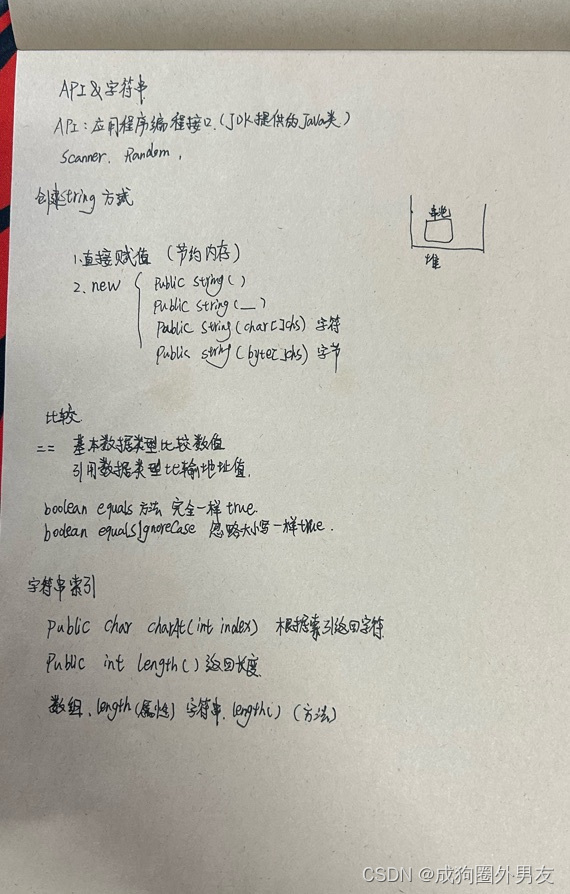 API & 字符串
API：应用程序编程接口.（JDK提供的Java类）
Scanner. Random,
创建string 方式
串池
堆
1.直接赋值（节约内存）
2. new { public string( )
public string(__)
public string(char[ ]chs) 字符
public string(byte[ ]chs) 字节
比较
== 基本数据类型比较数值
引用数据类型比输地址值.
boolean equals 方法 完全一样 true.
boolean equalsIgnoreCase 忽略大小写一样true.
字符串索引
public char charAt(int index) 根据索引返回字符
public int length( ) 返回长度
数组.length(属性) 字符串.length( ) (方法)
CSDN @成狗圈外男友